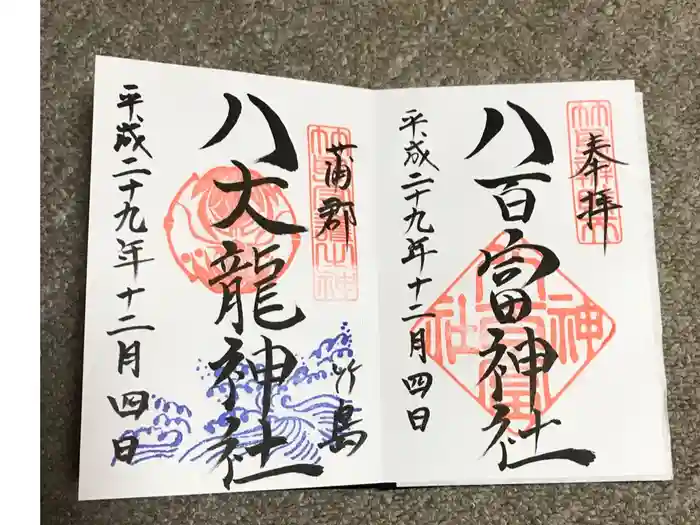 奉拝
八百富神社
平成二十九年十二月四日
蒲郡
竹島
八大龍神社
平成二十九年十二月四日